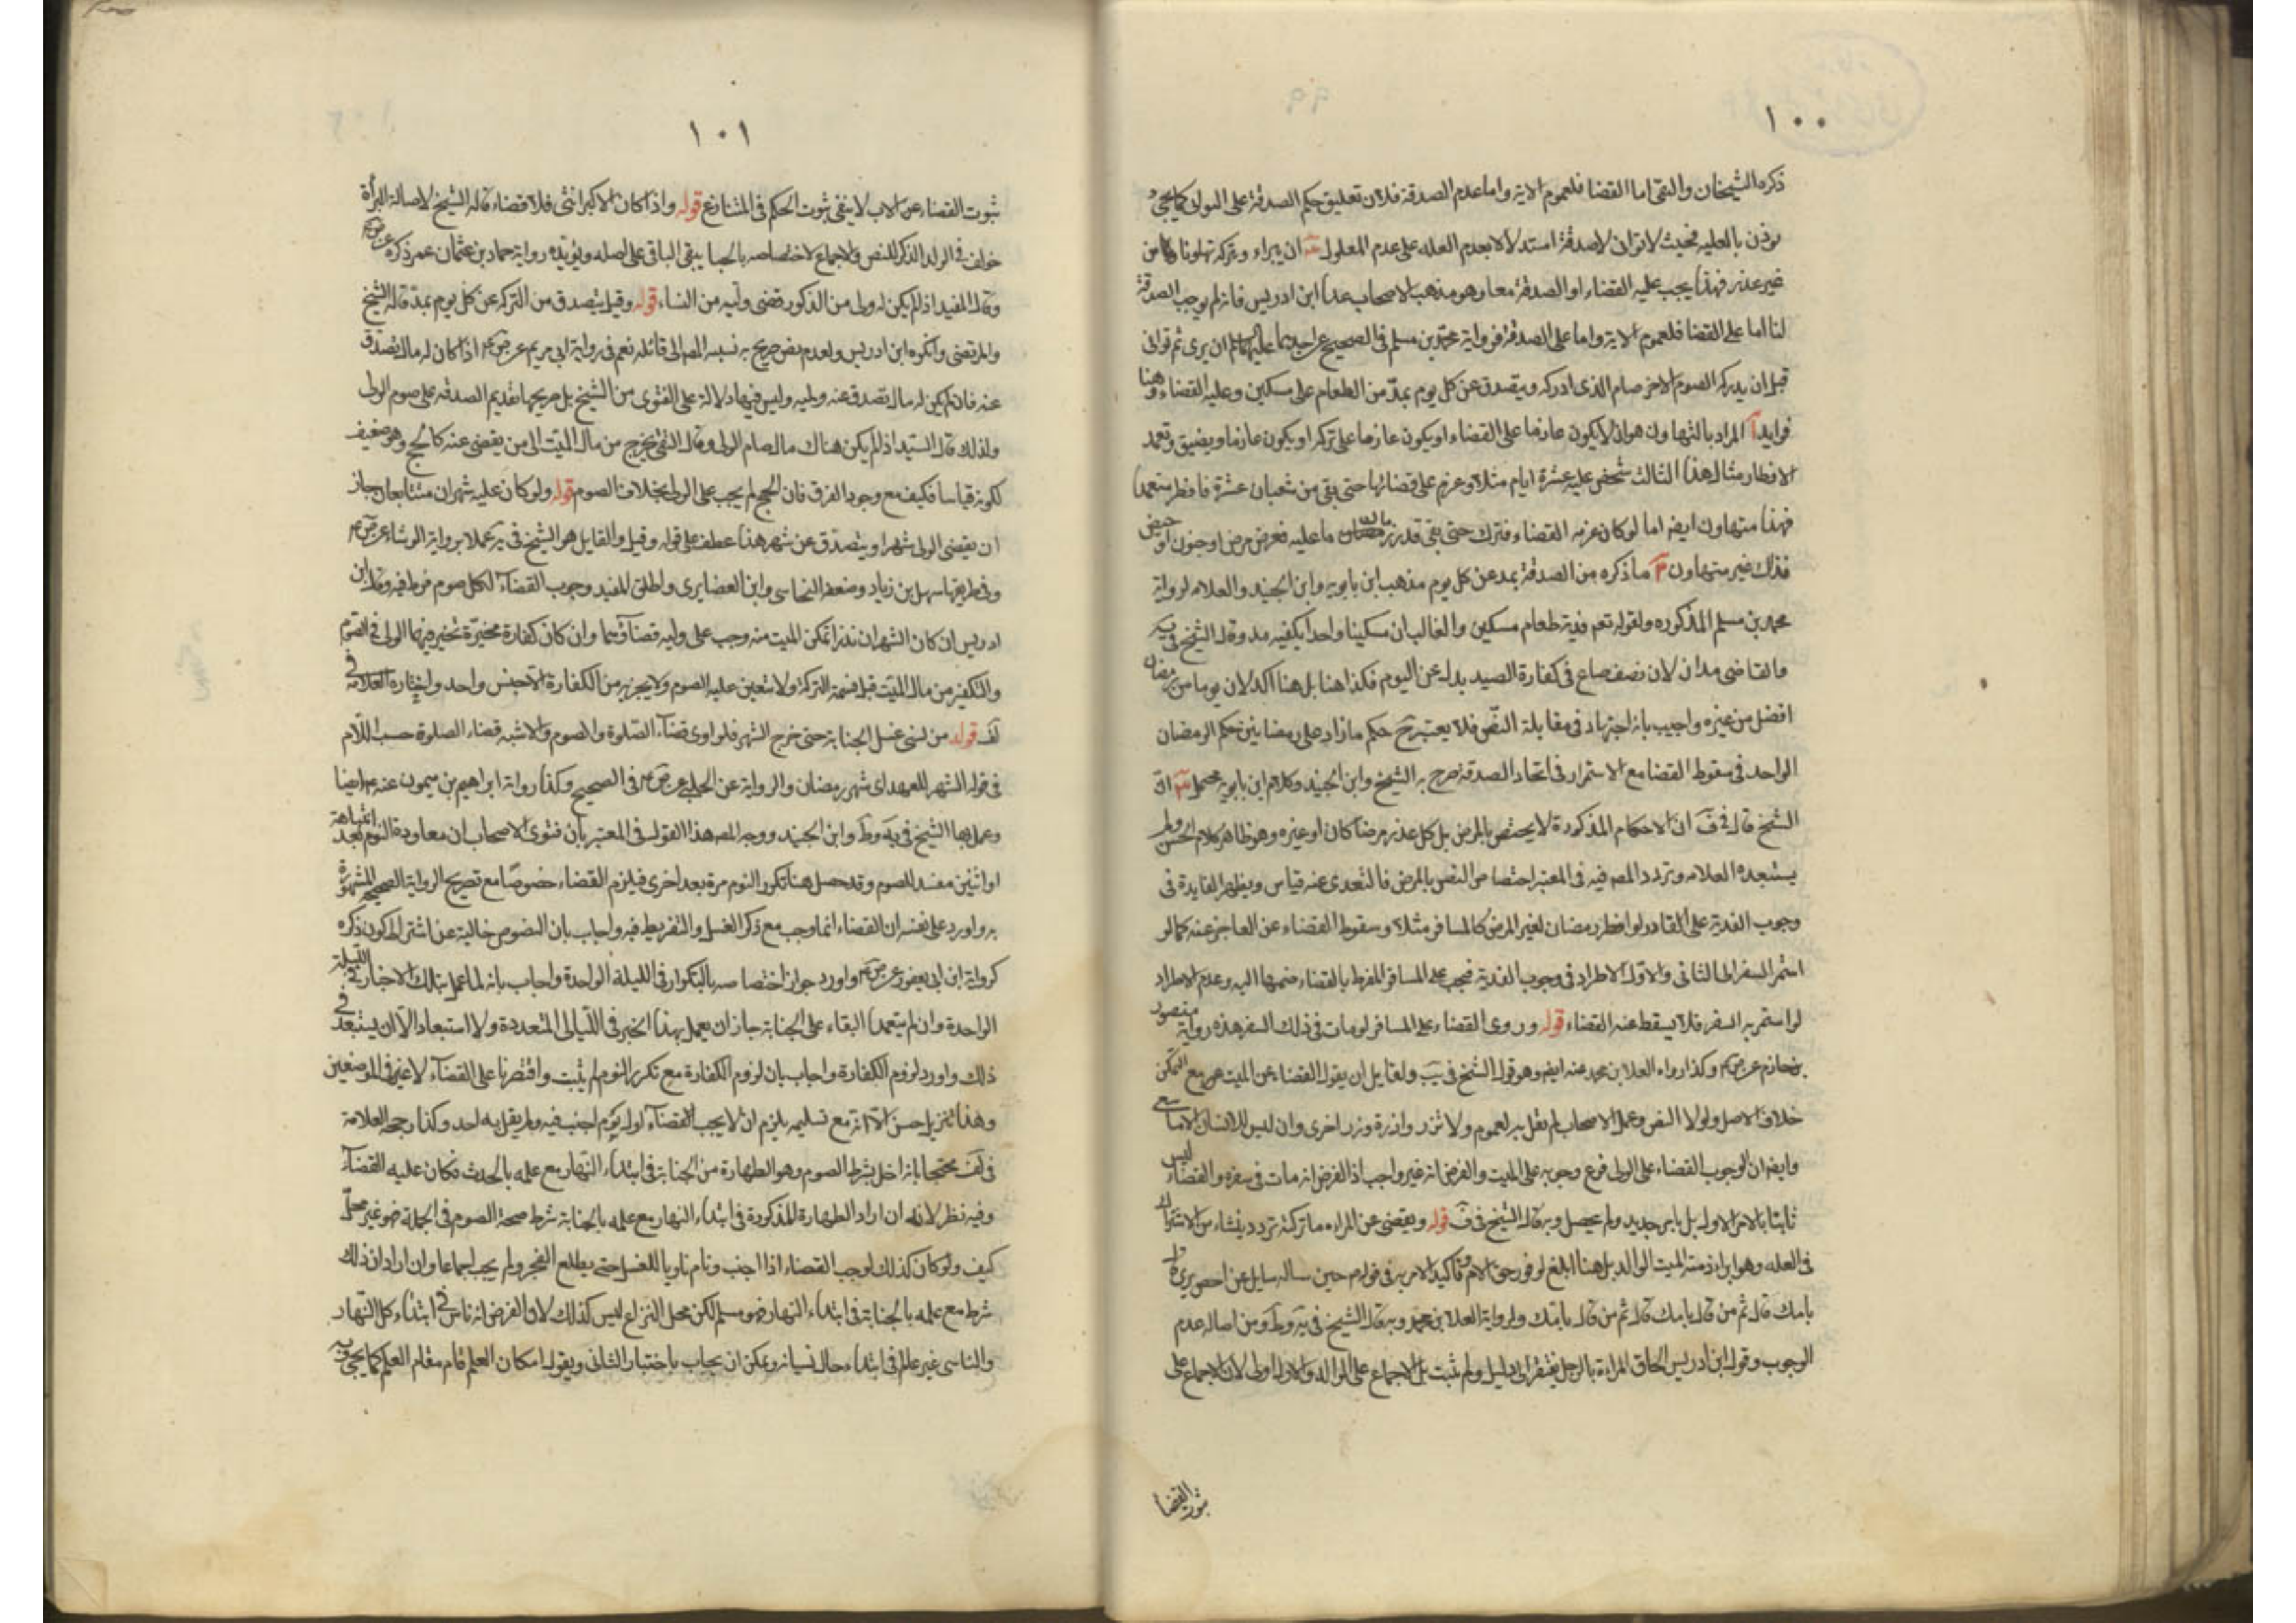 ١٠٠
ذكره الشيخان والتقى اما القضا فلعموم الاية واما عدم الصدقة فلان تعليق حكم الصدقة على التوانى كما يجئ
يوذن بالعليه فحيث لا توانى لا صدقة استدلالا بعدم العله على عدم المعلول ان يبراء ويتركه تهاونا من
غير عذر فهذا يجب عليه القضاء او الصدقة معا وهو مذهب الاصحاب عدا ابن ادريس فانه لم يوجب الصدقة
لنا اما على القضا فلعموم الاية واما على الصدقة فرواية محمد بن مسلم فى الصحيح عن احدهما عليهما ان برى ثم توانى
قبل ان يدركه الصوم الاخر صام الذى ادركه ويتصدق عن كل يوم بمدّ من الطعام على مسكين وعليه القضاء وهنا
فوايد آ المراد بالتهاون هو ان لا يكون عازما على القضاء او يكون عازما على تركه او يكون عازما ويضيق وتعمد
الافطار مثال هذا الثالث شخص عليه عشرة ايام مثلا وعزم على قضائها حتى بقى من شعبان عشرة فافطر متعمدا
فهذا متهاون ايضه اما لو كان عزمه القضاء فترك حتى بقى قدر ما عليه فعرض مرض او جنون او حيض
فذلك غير متهاون ما ذكره من الصدقة بمد عن كل يوم مذهب ابن بابويه وابن الجنيد والعلامه لرواية
محمد بن مسلم المذكوره ولقوله تعم فدية طعام مسكين والغالب ان مسكينا واحدا يكفيه مد وقال الشيخ فى يه
والقاضى مدان لان نصف صاع فى كفارة الصيد بدل عن اليوم فكذا هنا بل هنا اكد لان يوما من رمضان
افضل من غيره واجيب بانه اجتهاد فى مقابلة النصّ فلا يعتبر حكم ما زاد على رمضانين حكم الرمضان
الواحد فى سقوط القضا مع الاستمرار فى اتحاد الصدقة صرح به الشيخ وابن الجنيد وكلام ابن بابويه محتمل انّ
الشيخ قال فى ف ان الاحكام المذكورة لا يختص بالمرض بل كل عذر مرضا كان او غيره وهو ظاهر كلام الحسن ولم
يستبعده العلامه وتردد المصه فيه فى المعتبر اختصاص النص بالمرض فالتعدى عنه قياس ويظهر الفايدة فى
وجوب الفدية على القادر لو افطر رمضان لغير المرض كالمسافر مثلا وسقوط القضاء عن العاجز عنه كما لو
استمر السفر الى الثانى والاول الاطراد فى وجوب الفدية فيجب على المسافر المفرط بالقضاء ضمها اليه وعدم الاطراد
لو استمر به السفر فلا يسقط عنه القضاء قوله وروى القضاء على المسافر لو مات فى ذلك السفر هذه رواية منصور
بن حازم عن ص م وكذا رواه العلا بن محمد عنه ايضه وهو قول الشيخ فى يب ولقايل ان يقول القضاء عن الميت مع التمكن
خلاف الاصل ولولا النص وعمل الاصحاب لم نقل به لعموم ولا تزر وازرة وزر اخرى وان ليس للانسان الا ما سعى
وايضه ان الوجوب القضاء على الولى فرع وجوبه على الميت والفرض انه غير واجب اذا الفرض انه مات فى سفره والقضاء ليس
ثابتا بالامر الاول بل بامر جديد ولم يحصل وبه قال الشيخ فى ف قوله ويقضى عن المراه ما تركته تردد ينشاء من الاشتراك
فى العله وهو ابراء ذمته الميت الوالد بل هنا ابلغ لوفور حق الام وتاكيد الامر به فى قوله م حين ساله سايل عن احص بره
بامك قال ثم من قال بامك قال ثم من قال بامك ولرواية العلا بن محمد وبه قال الشيخ فى يه وط ومن اصاله عدم
الوجوب وقول ابن ادريس الحاق المراءة بالرجل يفتقر الى دليل ولم يثبت بل الاجماع على الوالد والاول اولى لان الاجماع على
ثبوت القضا
١٠١
ثبوت القضاء عن الاب لا ينفى ثبوت الحكم فى المتنازع قوله واذا كان الاكبر انثى فلا قضاء قاله الشيخ لاصالة البرأة
خولف فى الولد الذكر للنص والاجماع لاختصاصه بالحبا يبقى الباقى على اصله ويؤيده رواية حماد بن عثمان عمن ذكره عن
وقال المفيد اذا لم يكن له ولى من الذكور قضى وليه من النساء قوله وقيل يتصدق من التركه عن كل يوم بمدّ قاله الشيخ
والمرتضى وانكره ابن ادريس ولعدم نص صريح به نسبه المصه الى قائله نعم فى رواية ابى مريم عن ص م اذا كان له مال تصدق
عنه فان لم يكن له مال تصدق عنه وليه وليس فيها دلالة على الفتوى من الشيخ بل صريحها تقديم الصدقه على صوم الولى
ولذلك قال السيد اذا لم يكن هناك مال صام الولى وقال التقى يخرج من مال الميت الى من يقضى عنه كالحج وهو ضعيف
لكونه قياسا فكيف مع وجود الفرق فان الحج لم يجب على الولى بخلاف الصوم قوله ولو كان عليه شهران متتابعان جاز
ان يقضى الولى شهرا ويتصدّق عن شهر هذا عطف على قوله وقيل والقايل هو الشيخ فى يه عملا برواية الوشاء عن ض م
وفى طريقها سهل بن زياد وضعفه النجاسى وابن الغضايرى واطلق المفيد وجوب القضاء لكل صوم فرط فيه وقال ابن
ادريس ان كان الشهران نذرا تمكن الميت منه وجب على وليه قضاؤهما وان كان كفارة مخيرّة تخير فيها الولى فى الصوم
والتكفير من مال الميت قبل قسمة التركة ولا يتعين عليه الصوم ولا يجزيه من الكفارة الا جنس واحد واختاره العلامة فى
لف قوله من نسى غسل الجنابة حتى خرج الشهر فلو اوى قضاء الصّلوة والصوم والاشبه قضاء الصلوة حسب اللّام
فى قوله الشهر للعهد اى شهر رمضان والرواية عن الحلبى عن ص م فى الصحيح وكذا رواية ابراهيم بن ميمون عنه م ايضا
وعمل بها الشيخ فى يه وط وابن الجنيد ووجه المصه هذا القول فى المعتبر بان فتوى الاصحاب ان معاودة النوم بعد انتباهة
او اثنين مفسد للصوم وقد حصل هنا تكرر النوم مرة بعد اخرى فيلزم القضاء خصوصًا مع تصريح الرواية الصحيحه المشهورة
به واورد على نفسه ان القضاء انما وجب مع ذكر الغسل والتفريط فيه واجاب بان النصوص خالية عن اشتراط كون ذكره
كرواية ابن ابى يعفور عن ص م واورد جواز اختصاصه بالتكرار فى الليلة الواحدة واجاب بانه لما عمل بتلك الاخبار فى الليلة
الواحدة وان لم يتعمد البقاء على الجنابة جاز ان يعمل بهذا الخبر فى اللّيالى المتعددة ولا استبعاد الا ان يستبعد فى
ذلك واورد لزوم الكفارة واجاب بان لزوم الكفارة مع تكرر النوم لم يثبت واقتصرنا على القضاء لا غير فى الموضعين
وهذا تنزيل حسن الا انه مع تسليمه يلزم ان لا يجب القضاء اول يوم اجنب فيه ولم يقل به احد وكذا رجحه العلامة
فى لف محتجا بانه اخل بشرط الصوم وهو الطهارة من الجنابة فى ابتداء النهار مع علمه بالحدث فكان عليه القضاء
وفيه نظر لانه ان اراد الطهارة المذكورة فى ابتداء النهار مع علمه بالجنابة شرط صحة الصوم فى الجملة فهو غير محلّ
كيف ولو كان كذلك لوجب القضاء اذا اجنب ونام ناويا للغسل حتى يطلع الفجر ولم يجب اجماعا وان اراد ان ذلك
شرط مع علمه بالجنابة فى ابتداء النهار فهو مسلم لكن محل النزاع ليس كذلك لان الفرض انه ناس فى ابتداء كل النهار
والناسى غير عالم فى ابتداء حال نسيانه ويمكن ان يجاب باختيار الثانى ويقول امكان العلم قام مقام العلم كما يجئ